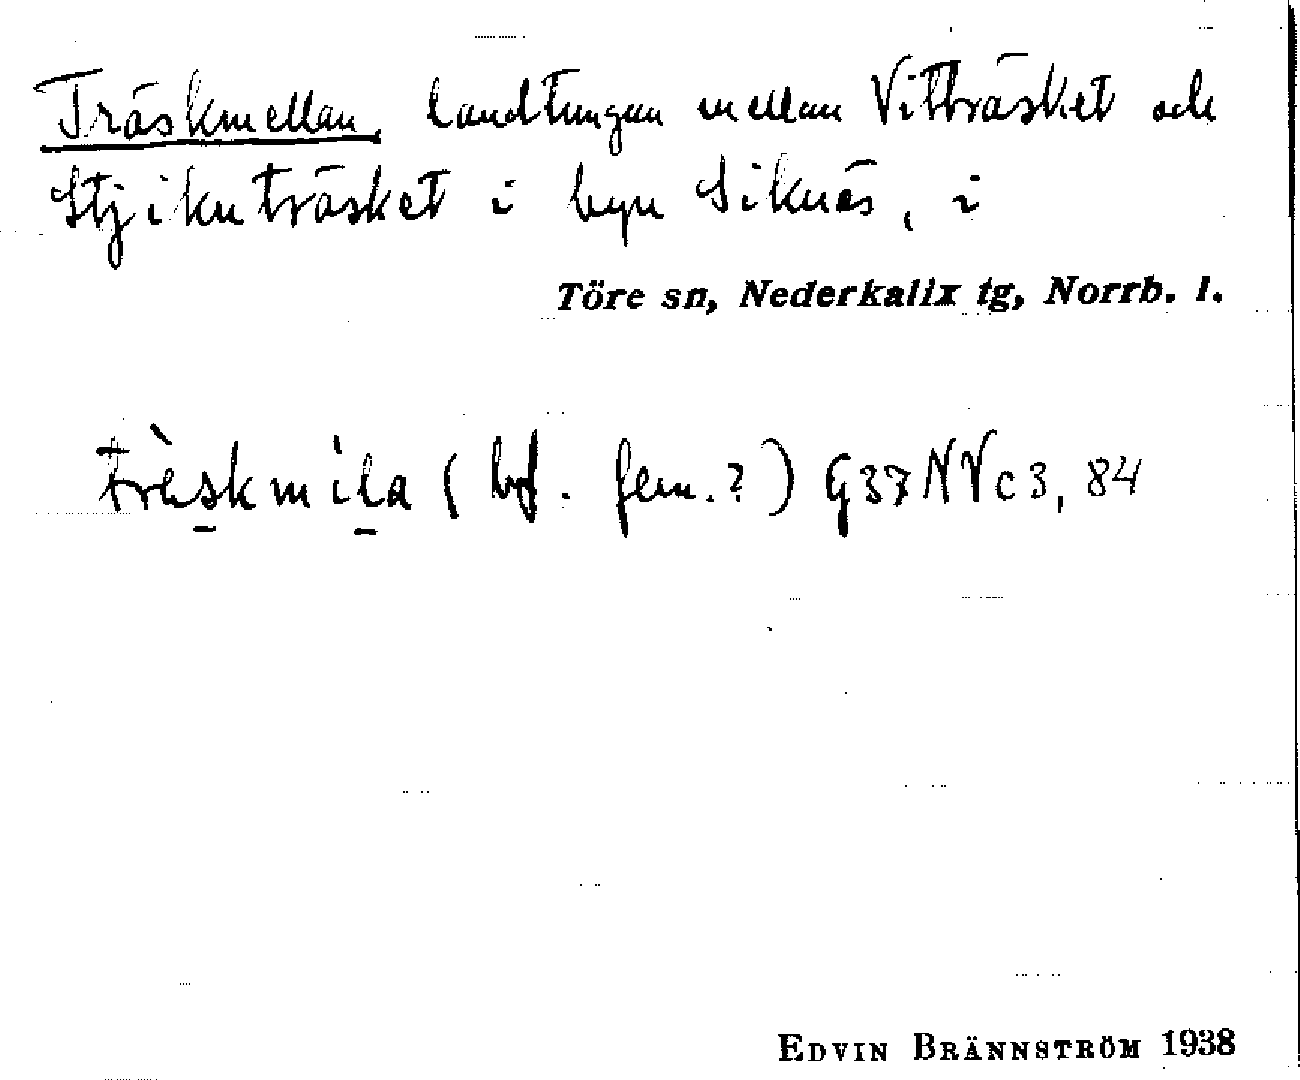 Träskmellan, landtungan mellan Vitträsket och
Stjiknträsket i byn Siknäs, i
Töre sn, Nederkalix tg, Norrb. l.
trèskmila (bf. fem.?) G37NVc3, 84
EDVIN BRÄNNSTRÖM 1938